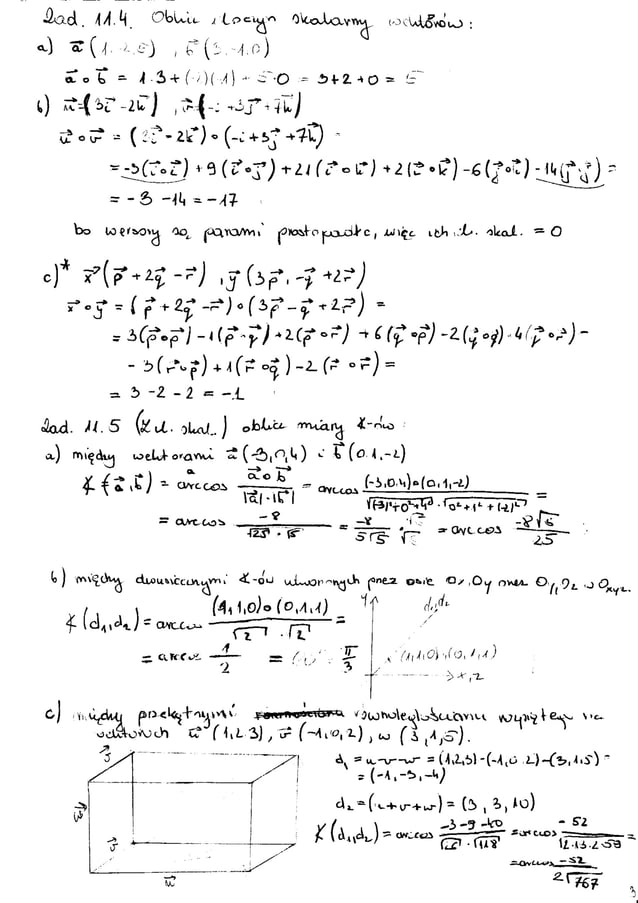 Zad. 11.4. Oblicz iloczyn skalarny wektorów:
a) a⃗(1,-2,5), b⃗(3,-1,0)
a⃗∘b⃗ = 1·3+(-2)(-1)+5·0 = 3+2+0 = 5
b) u⃗=(3i⃗-2k⃗), v⃗=(-i+3j⃗+7k⃗)
u⃗∘v⃗ = (3i⃗-2k⃗)∘(-i+3j⃗+7k⃗) =
= -3(i⃗∘i⃗)+9(i⃗∘j⃗)+21(i⃗∘k⃗)+2(i⃗∘k⃗)-6(j⃗∘k⃗)-14(j⃗·j⃗) =
= -3-14 = -17
bo wersory są parami prostopadłe, więc ich il. skal. = 0
c)* x⃗(p⃗+2q⃗-r⃗), y⃗(3p⃗,-q⃗+2r⃗)
x⃗∘y⃗ = (p⃗+2q⃗-r⃗)∘(3p⃗-q⃗+2r⃗) =
= 3(p⃗∘p⃗)-1(p⃗·q⃗)+2(p⃗∘r⃗)+6(q⃗∘p⃗)-2(q⃗∘q⃗)·4(q⃗∘r⃗)-
-3(r⃗∘p⃗)+1(r⃗∘q⃗)-2(r⃗∘r⃗) =
= 3-2-2 = -1
Zad. 11.5 (Z il. skal.) oblicz miary ∢-ów:
a) między wektorami a⃗(-3,0,4) i b⃗(0,1,-2)
∢(a⃗,b⃗) = arccos a⃗∘b⃗/|a⃗|·|b⃗| = arccos (-3,0,4)∘(0,1,-2)/√((-3)²+0²+4²)·√(0²+1²+(-2)²) =
= arccos -8/√25·√5 = -8/5√5 · √5/√5 = arccos -8√5/25
b) między dwusiecznymi ∢-ów utworzonych przez osie Ox, Oy oraz Oy, Oz w Oxyz.
∢(d₁,d₂) = arccos (1,1,0)∘(0,1,1)/√2·√2 =
= arccos 1/2 = 60° = π/3
y
d₁,d₂
(1,1,0),(0,1,1)
x,z
c) między przekątnymi równoległościanu wypiętego na
wektorach u⃗(1,2,3), v⃗(-1,0,2), w(3,1,5).
d₁ = u-v-w = (1,2,3)-(-1,0,2)-(3,1,5) =
= (-1,-3,-4)
d₂ = (u+v+w) = (3,3,10)
∢(d₁,d₂) = arccos -3-9-40/√26·√118 = arccos -52/√2·13·2·59 =
= arccos -52/2√767
v⃗
w⃗
v⃗
u⃗
3